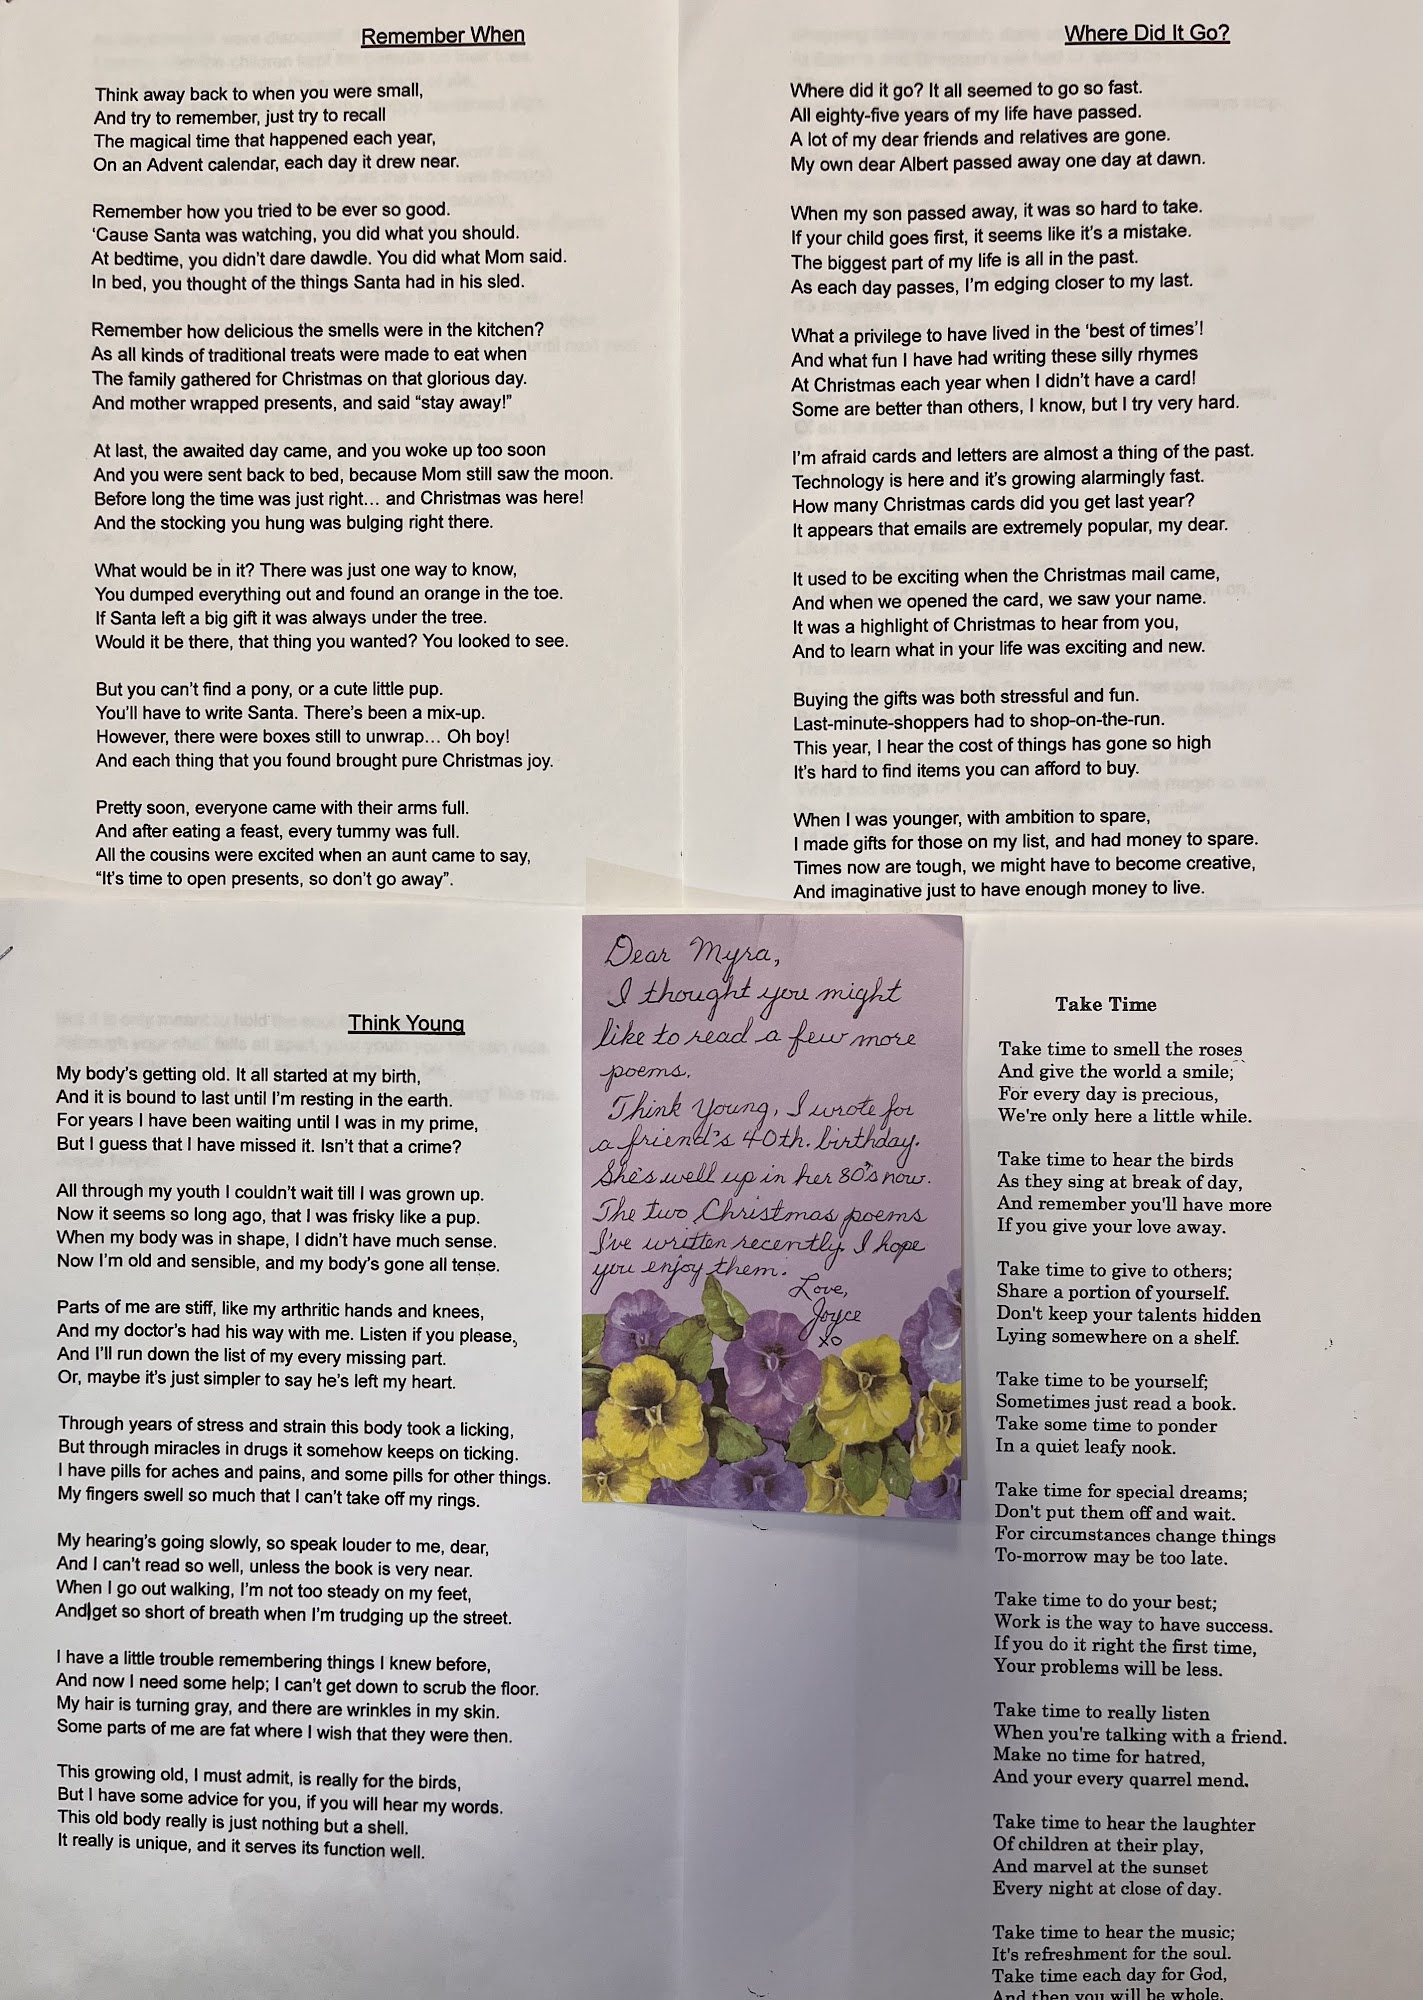 Remember When
Think away back to when you were small,
And try to remember, just try to recall
The magical time that happened each year,
On an Advent calendar, each day it drew near.
Remember how you tried to be ever so good.
‘Cause Santa was watching, you did what you should.
At bedtime, you didn’t dare dawdle. You did what Mom said.
In bed, you thought of the things Santa had in his sled.
Remember how delicious the smells were in the kitchen?
As all kinds of traditional treats were made to eat when
The family gathered for Christmas on that glorious day.
And mother wrapped presents, and said “stay away!”
At last, the awaited day came, and you woke up too soon
And you were sent back to bed, because Mom still saw the moon.
Before long the time was just right… and Christmas was here!
And the stocking you hung was bulging right there.
What would be in it? There was just one way to know,
You dumped everything out and found an orange in the toe.
If Santa left a big gift it was always under the tree.
Would it be there, that thing you wanted? You looked to see.
But you can’t find a pony, or a cute little pup.
You’ll have to write Santa. There’s been a mix-up.
However, there were boxes still to unwrap… Oh boy!
And each thing that you found brought pure Christmas joy.
Pretty soon, everyone came with their arms full.
And after eating a feast, every tummy was full.
All the cousins were excited when an aunt came to say,
“It’s time to open presents, so don’t go away”.
Where Did It Go?
Where did it go? It all seemed to go so fast.
All eighty-five years of my life have passed.
A lot of my dear friends and relatives are gone.
My own dear Albert passed away one day at dawn.
When my son passed away, it was so hard to take.
If your child goes first, it seems like it’s a mistake.
The biggest part of my life is all in the past.
As each day passes, I’m edging closer to my last.
What a privilege to have lived in the ‘best of times’!
And what fun I have had writing these silly rhymes
At Christmas each year when I didn’t have a card!
Some are better than others, I know, but I try very hard.
I’m afraid cards and letters are almost a thing of the past.
Technology is here and it’s growing alarmingly fast.
How many Christmas cards did you get last year?
It appears that emails are extremely popular, my dear.
It used to be exciting when the Christmas mail came,
And when we opened the card, we saw your name.
It was a highlight of Christmas to hear from you,
And to learn what in your life was exciting and new.
Buying the gifts was both stressful and fun.
Last-minute-shoppers had to shop-on-the-run.
This year, I hear the cost of things has gone so high
It’s hard to find items you can afford to buy.
When I was younger, with ambition to spare,
I made gifts for those on my list, and had money to spare.
Times now are tough, we might have to become creative,
And imaginative just to have enough money to live.
Think Young
My body’s getting old. It all started at my birth,
And it is bound to last until I’m resting in the earth.
For years I have been waiting until I was in my prime,
But I guess that I have missed it. Isn’t that a crime?
All through my youth I couldn’t wait till I was grown up.
Now it seems so long ago, that I was frisky like a pup.
When my body was in shape, I didn’t have much sense.
Now I’m old and sensible, and my body’s gone all tense.
Parts of me are stiff, like my arthritic hands and knees,
And my doctor’s had his way with me. Listen if you please,
And I’ll run down the list of my every missing part.
Or, maybe it’s just simpler to say he’s left my heart.
Through years of stress and strain this body took a licking,
But through miracles in drugs it somehow keeps on ticking.
I have pills for aches and pains, and some pills for other things.
My fingers swell so much that I can’t take off my rings.
My hearing’s going slowly, so speak louder to me, dear,
And I can’t read so well, unless the book is very near.
When I go out walking, I’m not too steady on my feet,
And|get so short of breath when I’m trudging up the street.
I have a little trouble remembering things I knew before,
And now I need some help; I can’t get down to scrub the floor.
My hair is turning gray, and there are wrinkles in my skin.
Some parts of me are fat where I wish that they were then.
This growing old, I must admit, is really for the birds,
But I have some advice for you, if you will hear my words.
This old body really is just nothing but a shell.
It really is unique, and it serves its function well.
Dear Myra,
I thought you might
like to read a few more
poems.
Think Young, I wrote for
a friend's 40th. birthday.
She's well up in her 80's now.
The two Christmas poems
I've written recently. I hope
you enjoy them.
Love,
Joyce
xo
Take Time
Take time to smell the roses
And give the world a smile;
For every day is precious,
We're only here a little while.
Take time to hear the birds
As they sing at break of day,
And remember you'll have more
If you give your love away.
Take time to give to others;
Share a portion of yourself.
Don't keep your talents hidden
Lying somewhere on a shelf.
Take time to be yourself;
Sometimes just read a book.
Take some time to ponder
In a quiet leafy nook.
Take time for special dreams;
Don't put them off and wait.
For circumstances change things
To-morrow may be too late.
Take time to do your best;
Work is the way to have success.
If you do it right the first time,
Your problems will be less.
Take time to really listen
When you're talking with a friend.
Make no time for hatred,
And your every quarrel mend.
Take time to hear the laughter
Of children at their play,
And marvel at the sunset
Every night at close of day.
Take time to hear the music;
It's refreshment for the soul.
Take time each day for God,
And then you will be whole.